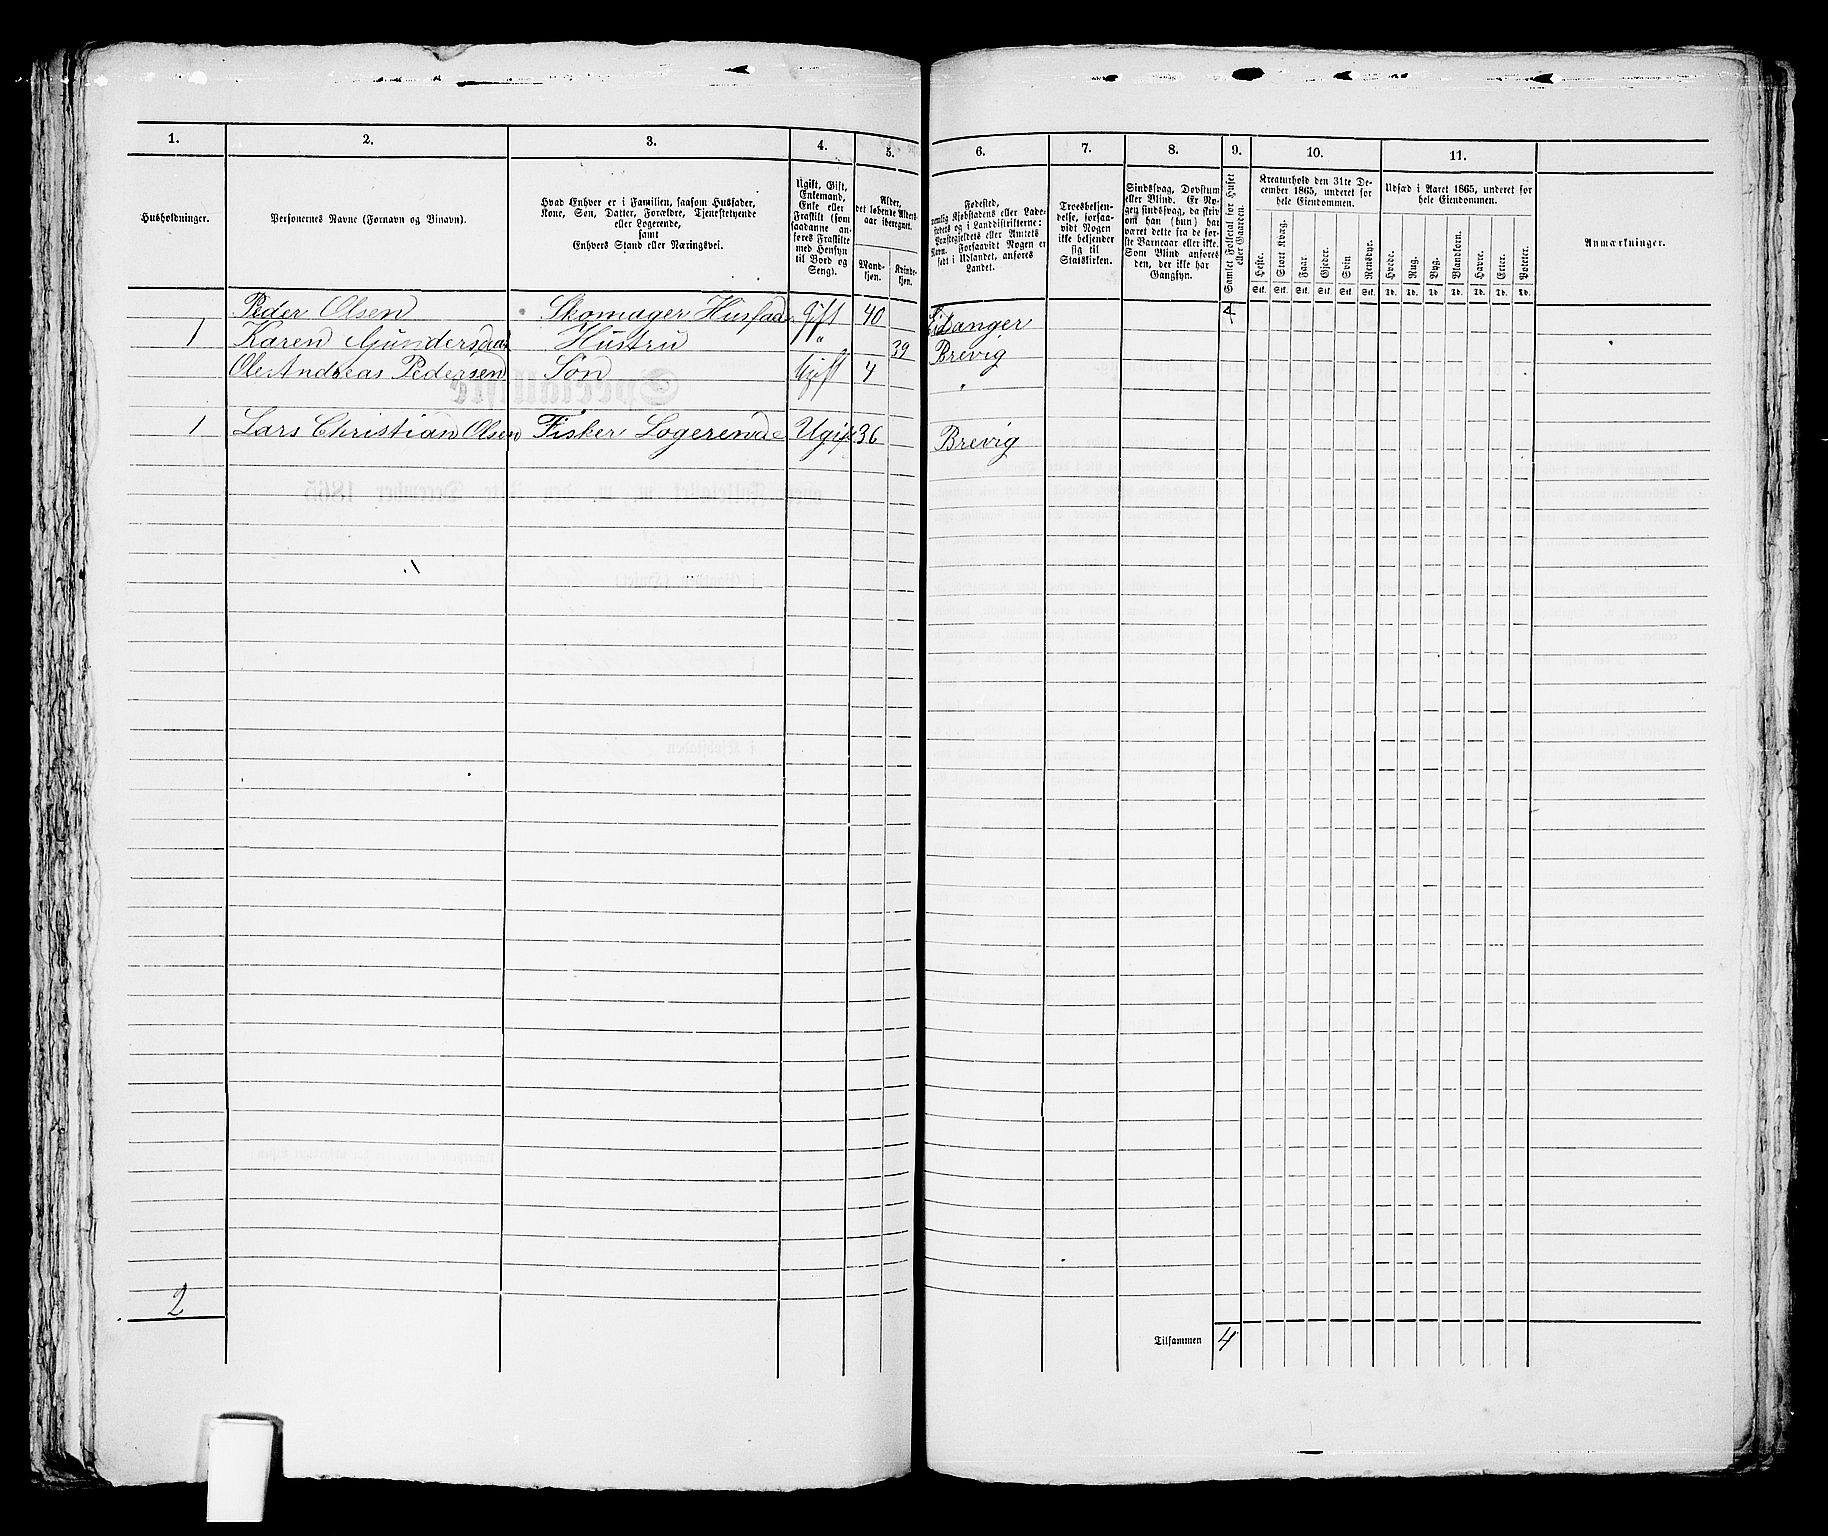 1. 2. 3. 4. 5. 6. 7. 8. 9. 10. 11.
Husholdninger.
Personernes Navne (Fornavn og Binavn).
Hvad Enhver er i Familien, saasom Husfader,
Kone, Søn, Datter, Forældre, Tjenestetyende
eller Logerende,
samt
Enhvers Stand eller Næringsvei.
Ugift, Gift,
Enkemand,
Enke eller
Fraskilt (som
saadanne an-
føres Fraskilte
med Hensyn
til Bord og
Seng).
Alder,
det løbende Alders-
aar iberegnet.
Mand-
kjøn.
Kvinde-
kjøn.
Fødested,
nemlig Kjøbstadens eller Lade-
stedets og i Landdistrikterne:
Præstegjeldets eller Amtets
Navn. Forsaavidt Nogen er
født i Udlandet, anføres
Landet.
Troesbekjen-
delse, forsaa-
vidt Nogen
ikke bekjender
sig til
Statskirken.
Sindssvag, Døvstum
eller Blind. Er No-
gen sindssvag, da skriv
om han (hun) har
været dette fra de før-
ste Barneaar eller ikke.
Som Blind anføres
den, der ikke har
Gangsyn.
Samlet Folketal for Huset
eller Gaarden.
Kreaturhold den 31te De-
cember 1865, underet for
hele Eiendommen.
Heste. Stort Kvæg. Faar. Gjeder. Svin Rensdyr.
Stk. Stk. Stk. Stk. Stk. Stk.
Udsæd i Aaret 1865, underet for
hele Eiendommen.
Hvede. Rug. Byg. Blandkorn. Havre. Erter. Poteter.
Td. Td. Td. Td. Td. Td. Td.
Anmærkninger.
Peder Olsen Skomager Husfad. Gift 40 Eidanger 4
1 Karen Gundersdat Hustru " 39 Brevig
Ole Andreas Pedersen Søn Ugift 4 "
1 Lars Christian Olsen Fisker Logerende Ugift 36 Brevig
2
Tilsammen 4